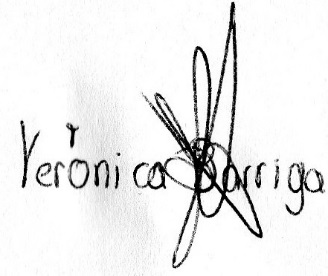 Verónica Barriga